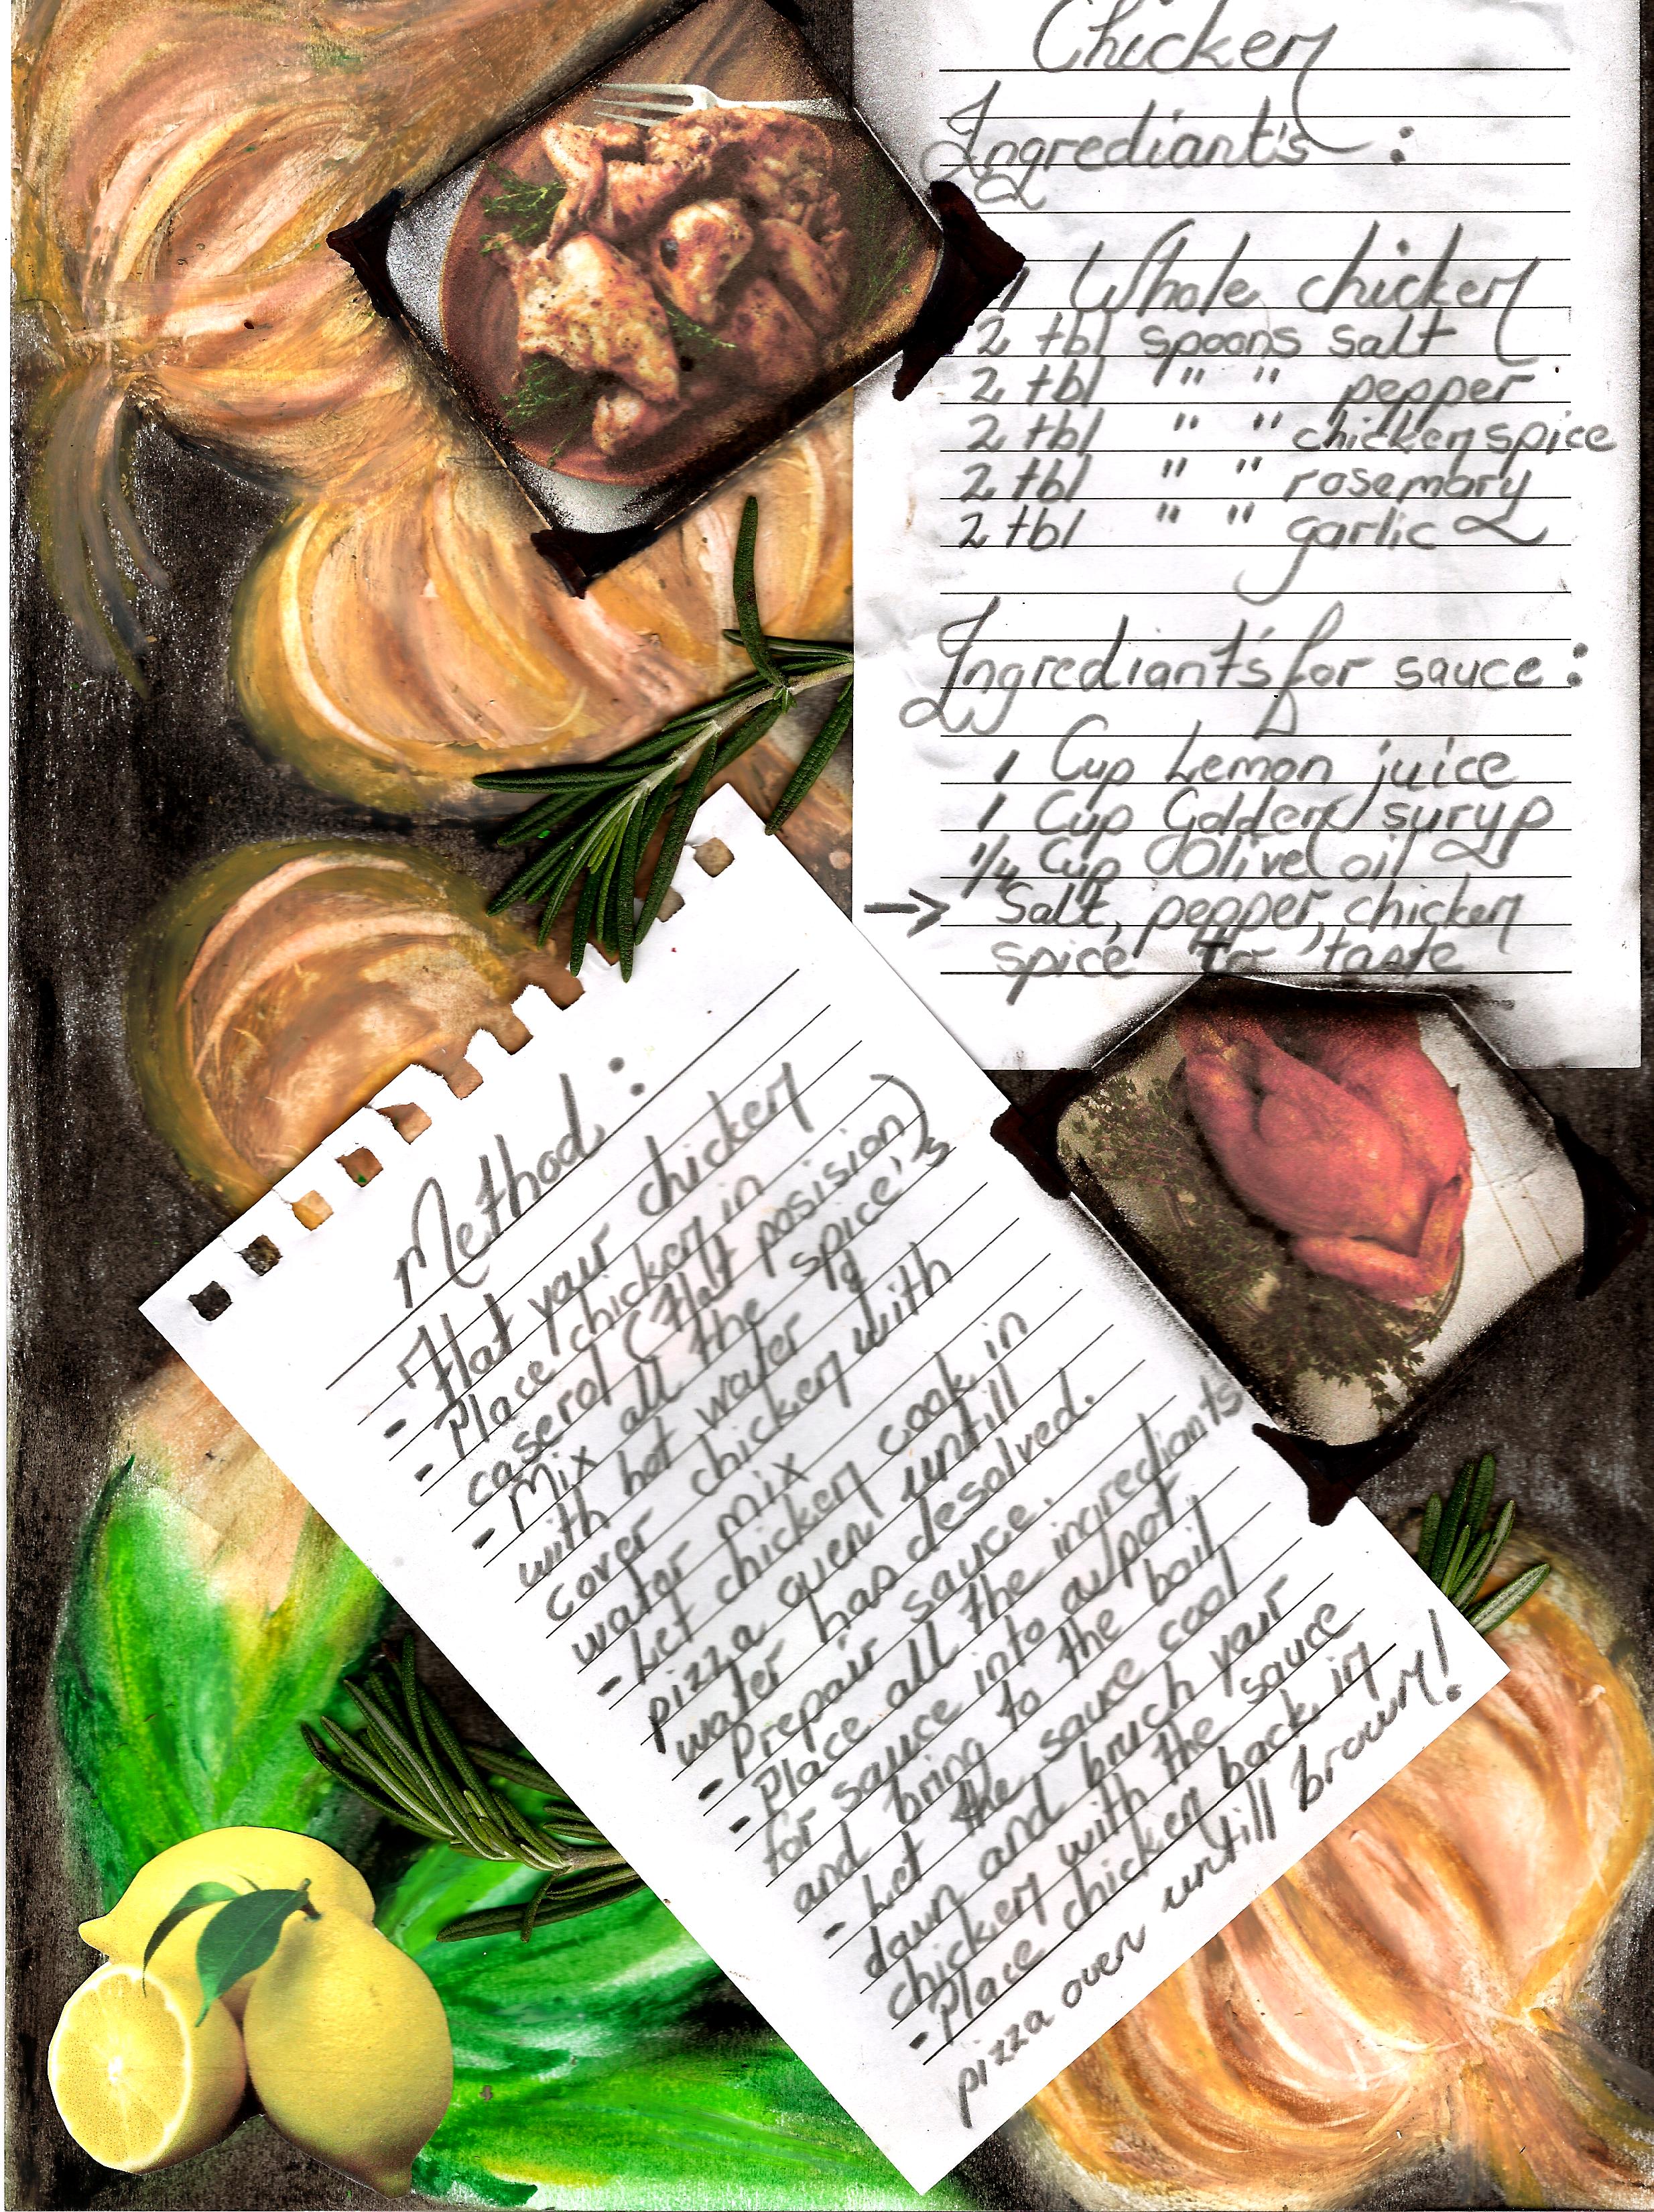 Chicken
Ingrediant's :
1 Whole chicken
2 tbl spoons salt
2 tbl " " pepper
2 tbl " " chicken spice
2 tbl " " rosemary
2 tbl " " garlic
Ingrediant's for sauce :
1 Cup Lemon juice
1 Cup Golden suryp
1/4 Cup Olive oil
→ Salt, pepper, chicken
spice to taste
Method :
- Flat your chicken
- Place chicken in
caserol (flat posision)
- Mix all the spice's
with hot water &
cover chicken with
water mix
- Let chicken cook in
pizza oven untill
water has desolved.
- Prepair sauce.
- Place all the ingrediants
for sauce into a pot,
and bring to the boil.
- Let the sauce cool
down and bruch your
chicken with the sauce
- Place chicken back in
pizza oven untill brown!